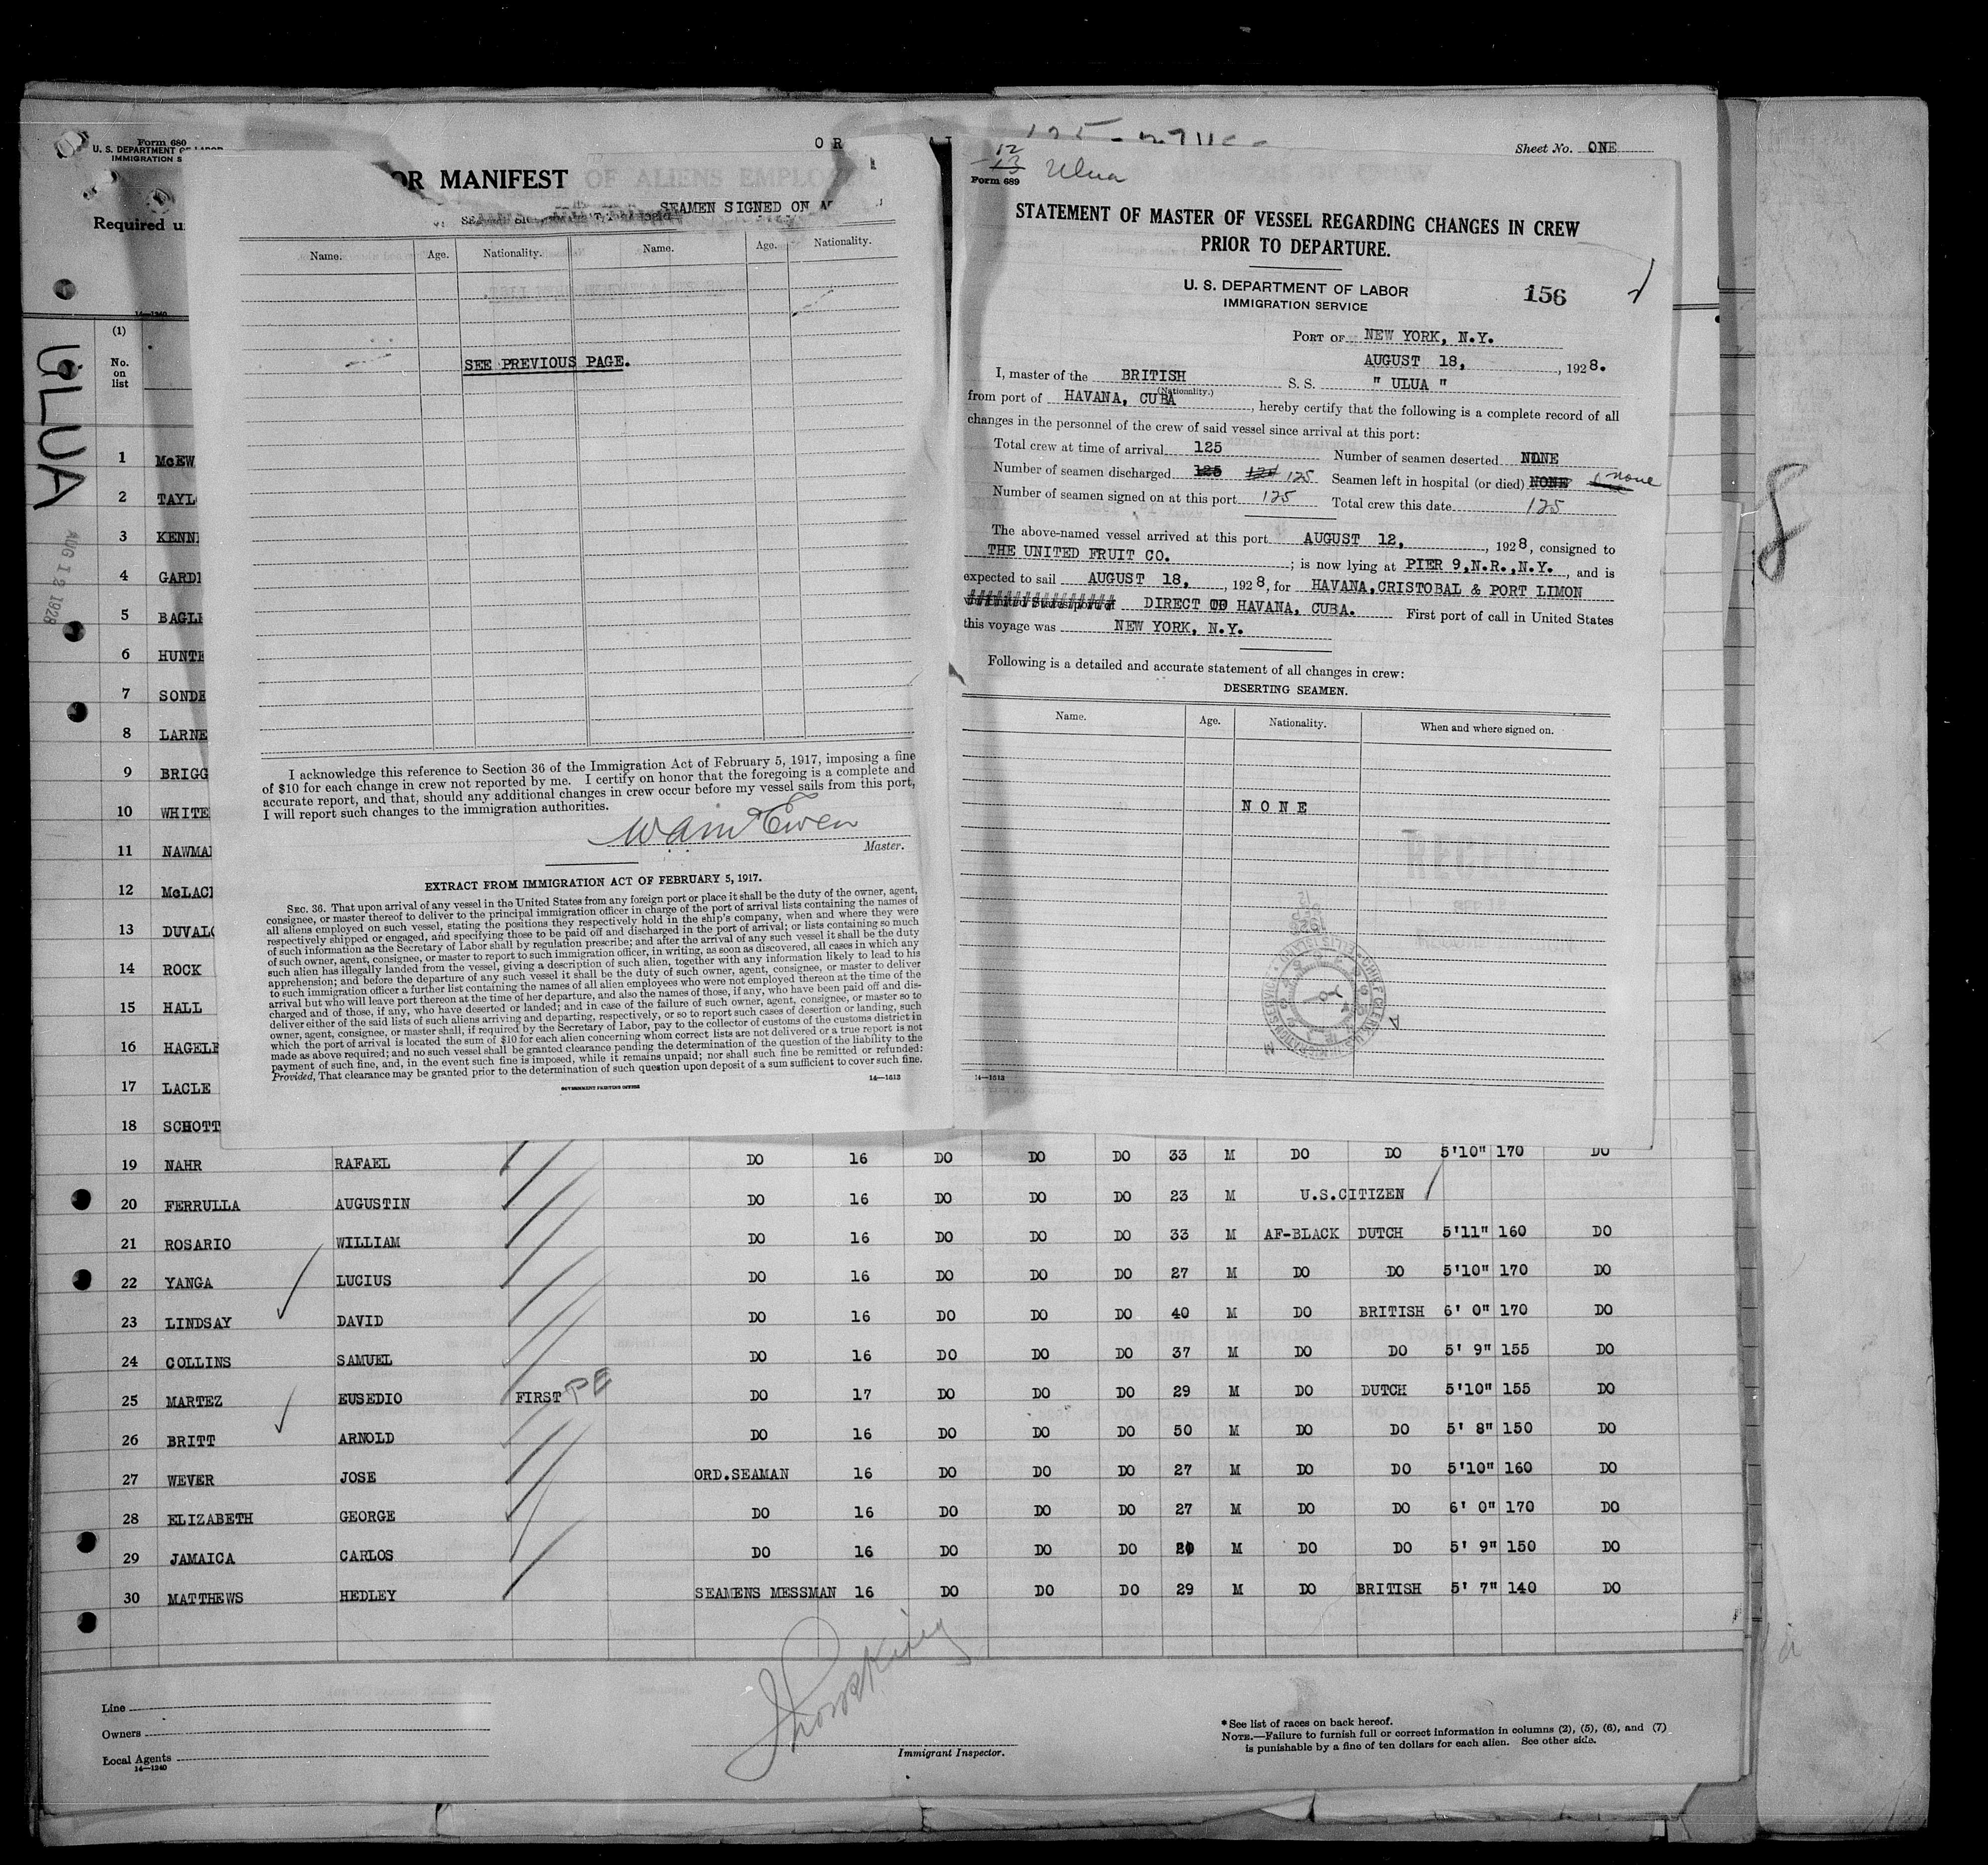 Form 680
U. S. DEPARTMENT OF LABOR
IMMIGRATION S
Required u
14—1240
OR
Sheet No. ONE
ULUA
AUG 12 1928
OR MANIFEST
SEAMEN SIGNED ON
Name. Age. Nationality. Name. Age. Nationality.
SEE PREVIOUS PAGE.
I acknowledge this reference to Section 36 of the Immigration Act of February 5, 1917, imposing a fine
of $10 for each change in crew not reported by me. I certify on honor that the foregoing is a complete and
accurate report, and that, should any additional changes in crew occur before my vessel sails from this port,
I will report such changes to the immigration authorities.
Master.
EXTRACT FROM IMMIGRATION ACT OF FEBRUARY 5, 1917.
SEC. 36. That upon arrival of any vessel in the United States from any foreign port or place it shall be the duty of the owner, agent,
consignee, or master thereof to deliver to the principal immigration officer in charge of the port of arrival lists containing the names of
all aliens employed on such vessel, stating the positions they respectively hold in the ship's company, when and where they were
respectively shipped or engaged, and specifying those to be paid off and discharged in the port of arrival; or lists containing so much
of such information as the Secretary of Labor shall by regulation prescribe; and after the arrival of any such vessel it shall be the duty
of such owner, agent, consignee, or master to report to such immigration officer, in writing, as soon as discovered, all cases in which any
such alien has illegally landed from the vessel, giving a description of such alien, together with any information likely to lead to his
apprehension; and before the departure of any such vessel it shall be the duty of such owner, agent, consignee, or master to deliver
to such immigration officer a further list containing the names of all alien employees who were not employed thereon at the time of the
arrival but who will leave port thereon at the time of her departure, and also the names of those, if any, who have been paid off and dis-
charged and of those, if any, who have deserted or landed; and in case of the failure of such owner, agent, consignee, or master so to
deliver either of the said lists of such aliens arriving and departing, respectively, or so to report such cases of desertion or landing, such
owner, agent, consignee, or master shall, if required by the Secretary of Labor, pay to the collector of customs of the customs district in
which the port of arrival is located the sum of $10 for each alien concerning whom correct lists are not delivered or a true report is not
made as above required; and no such vessel shall be granted clearance pending the determination of the question of the liability to the
payment of such fine, and, in the event such fine is imposed, while it remains unpaid; nor shall such fine be remitted or refunded:
Provided, That clearance may be granted prior to the determination of such question upon deposit of a sum sufficient to cover such fine.
GOVERNMENT PRINTING OFFICE
14—1613
12
13 Ulua
Form 689
STATEMENT OF MASTER OF VESSEL REGARDING CHANGES IN CREW
PRIOR TO DEPARTURE.
U. S. DEPARTMENT OF LABOR
IMMIGRATION SERVICE
156
PORT OF NEW YORK, N.Y.
AUGUST 18, , 1928.
I, master of the BRITISH S. S. " ULUA "
(Nationality.)
from port of HAVANA, CUBA , hereby certify that the following is a complete record of all
changes in the personnel of the crew of said vessel since arrival at this port:
Total crew at time of arrival 125 Number of seamen deserted NONE
Number of seamen discharged 125 124 125 Seamen left in hospital (or died) NONE 1 none
Number of seamen signed on at this port 125 Total crew this date 125
The above-named vessel arrived at this port AUGUST 12, , 1928, consigned to
THE UNITED FRUIT CO. ; is now lying at PIER 9,N.R.,N.Y. , and is
expected to sail AUGUST 18, , 1928, for HAVANA,CRISTOBAL & PORT LIMON
DIRECT TO HAVANA, CUBA. First port of call in United States
this voyage was NEW YORK, N.Y.
Following is a detailed and accurate statement of all changes in crew:
DESERTING SEAMEN.
Name. Age. Nationality. When and where signed on.
NONE
RECEIVED
14—1613
8
(1)
No.
on
list
1 McEW
2 TAYL
3 KENN
4 GARD
5 BAGL
6 HUNTE
7 SONDE
8 LARNE
9 BRIGG
10 WHITE
11 NAWMA
12 McLAC
13 DUVAL
14 ROCK
15 HALL
16 HAGELE
17 LACLE
18 SCHOTT
19 NAHR RAFAEL DO 16 DO DO DO 33 M DO DO 5'10" 170 DO
20 FERRULLA AUGUSTIN DO 16 DO DO DO 23 M U.S.CITIZEN
21 ROSARIO WILLIAM DO 16 DO DO DO 33 M AF-BLACK DUTCH 5'11" 160 DO
22 YANGA LUCIUS DO 16 DO DO DO 27 M DO DO 5'10" 170 DO
23 LINDSAY DAVID DO 16 DO DO DO 40 M DO BRITISH 6' 0" 170 DO
24 COLLINS SAMUEL DO 16 DO DO DO 37 M DO DO 5' 9" 155 DO
25 MARTEZ EUSEDIO FIRST PE DO 17 DO DO DO 29 M DO DUTCH 5'10" 155 DO
26 BRITT ARNOLD DO 16 DO DO DO 50 M DO DO 5' 8" 150 DO
27 WEVER JOSE ORD.SEAMAN 16 DO DO DO 27 M DO DO 5'10" 160 DO
28 ELIZABETH GEORGE DO 16 DO DO DO 27 M DO DO 6' 0" 170 DO
29 JAMAICA CARLOS DO 16 DO DO DO M DO DO 5' 9" 150 DO
30 MATTHEWS HEDLEY SEAMENS MESSMAN 16 DO DO DO 29 M DO BRITISH 5' 7" 140 DO
Line
Owners
Local Agents
14—1240
Immigrant Inspector.
*See list of races on back hereof.
NOTE.—Failure to furnish full or correct information in columns (2), (5), (6), and (7)
is punishable by a fine of ten dollars for each alien. See other side.